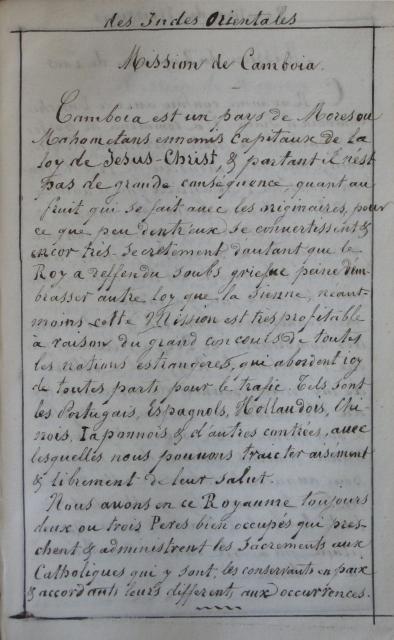 des Indes Orientales
Mission de Camboia.
Camboia est un pays de Mores ou
Mahometans ennemis capitaux de la
loy de Jesus-Christ, & partant il n'est
pas de grande consequence, quant au
fruit qui se fait avec les originaires, pour
ce que peu dentreux se convertissent &
encor tres-secretement d'autant que le
Roy a deffendu soubs griefue peine d'em-
brasser autre loy que la sienne, neant-
moins cette Mission est tres profitable
à raison du grand concours de toutes
les nations estrangeres, qui abordent icy
de toutes parts pour le trafic. Tels sont
les Portugais, Espagnols, Hollandois, Chi-
nois, Iaponnois & d'autres contrées, avec
lesquelles nous pouvons traicter aisement
& librement de leur salut.
Nous avons en ce Royaume toujours
deux ou trois Peres bien occupés qui pres-
chent & administrent les Sacrements aux
Catholiques qui y sont, les conservants en paix
& accordants leurs differents aux occurrences.